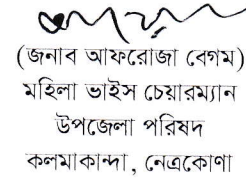 (জনাব আফরোজা বেগম)
মহিলা ভাইস চেয়ারম্যান
উপজেলা পরিষদ
কলমাকান্দা, নেত্রকোণা